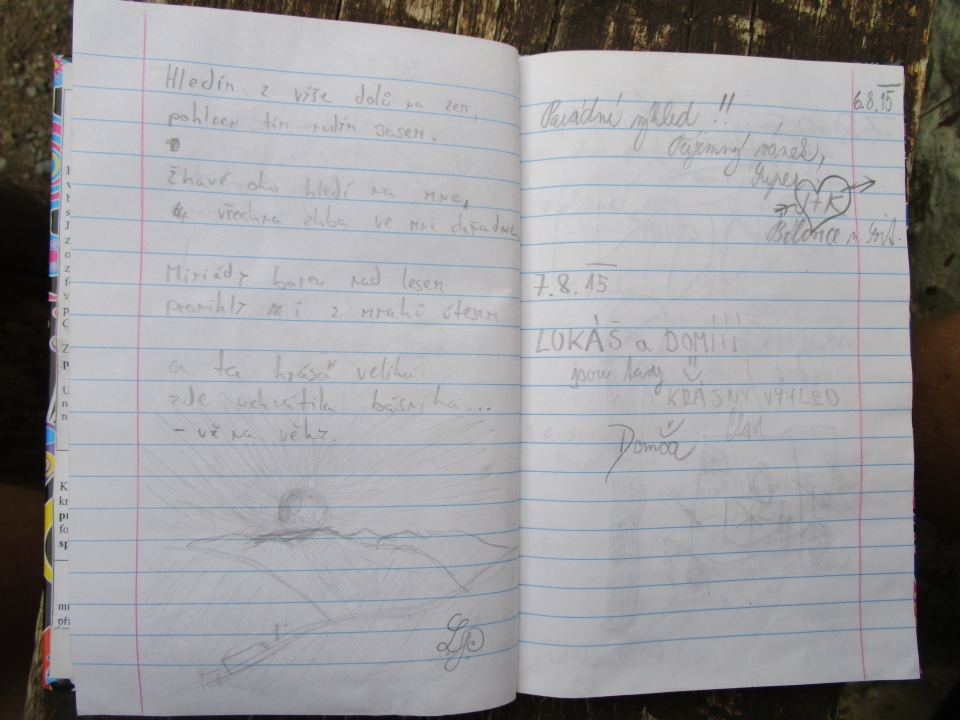 Hledím z výše dolů na zem,
pohlcen tím rudým jasem.
žhavé oko hledí na mne,
všechna zloba ve mně chřadne
Miriády barev nad lesem
pronikly i z mraků útesem
a ta krása veliká
zde uchvátila básníka...
- už na věky.
6.8.15
Parádní výhled !!
Příjemný vánek,
Super
J+K
7.8.15
LUKÁŠ a DOMÍÍÍ
jsou tady
KRÁSNÝ VÝHLED
Domča